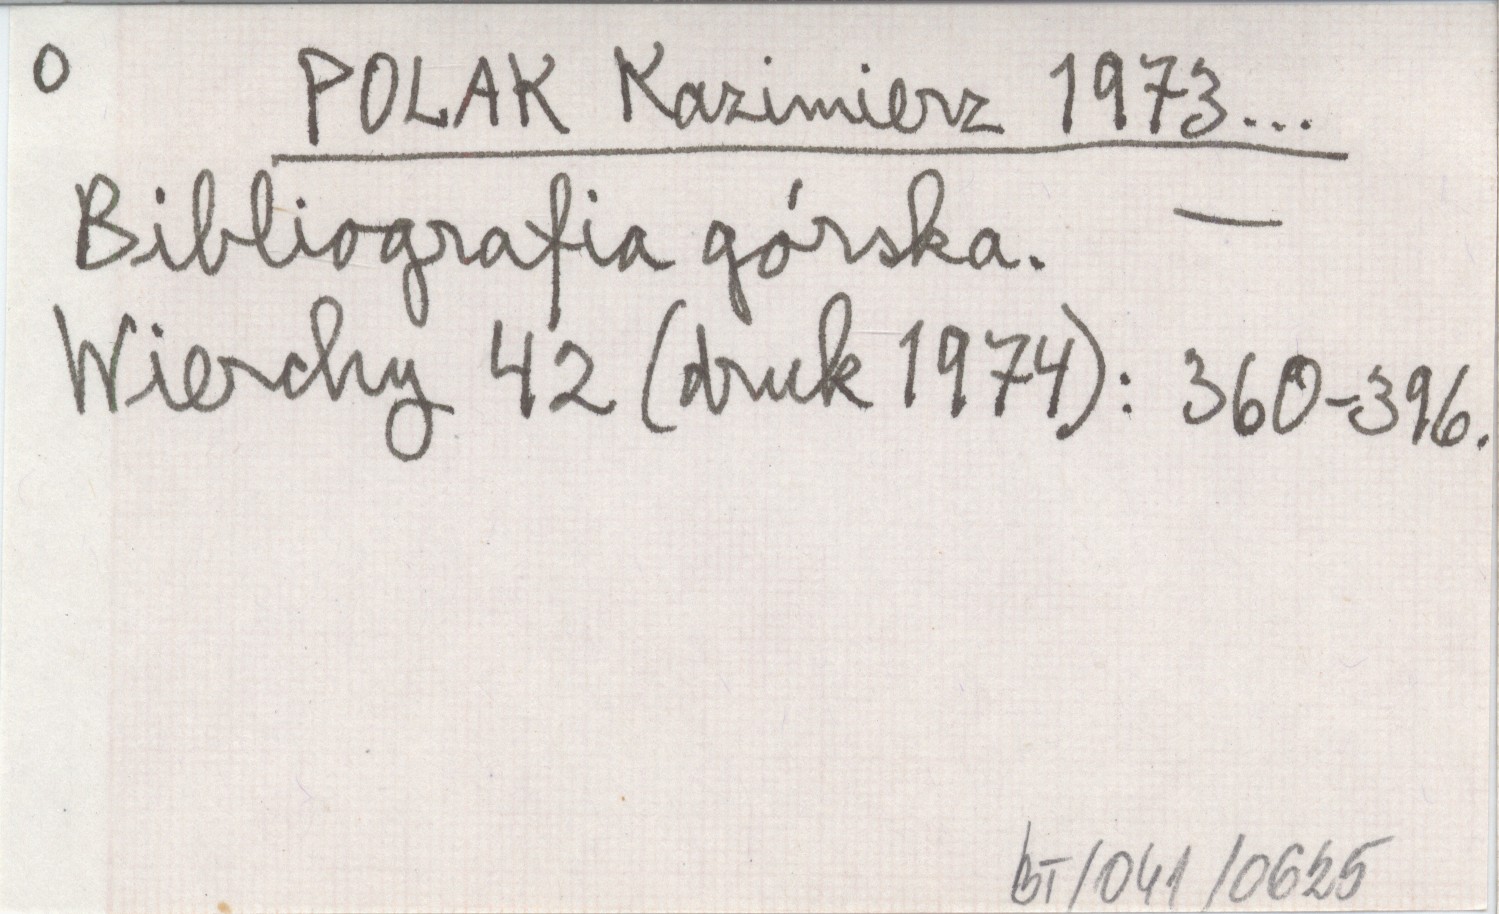 O POLAK Kazimierz 1973...
Bibliografia górska. —
Wierchy 42 (druk 1974): 360-396.
bT/041/0625